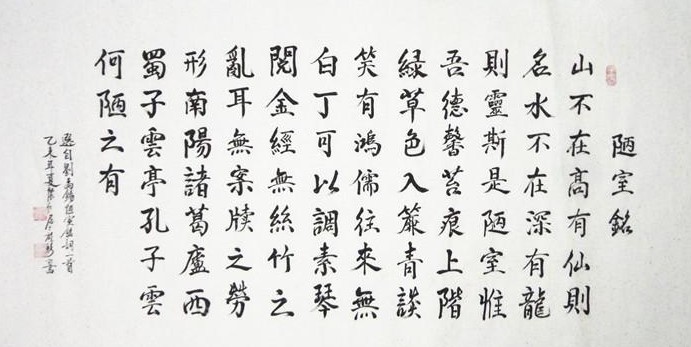 陋室銘
山不在高有仙則
名水不在深有龍
則靈斯是陋室惟
吾德馨苔痕上階
綠草色入簾青談
笑有鴻儒往來無
白丁可以調素琴
閱金經無絲竹之
亂耳無案牘之勞
形南陽諸葛廬西
蜀子雲亭孔子雲
何陋之有
選自劉禹錫陋室銘詞一首
乙未年夏書